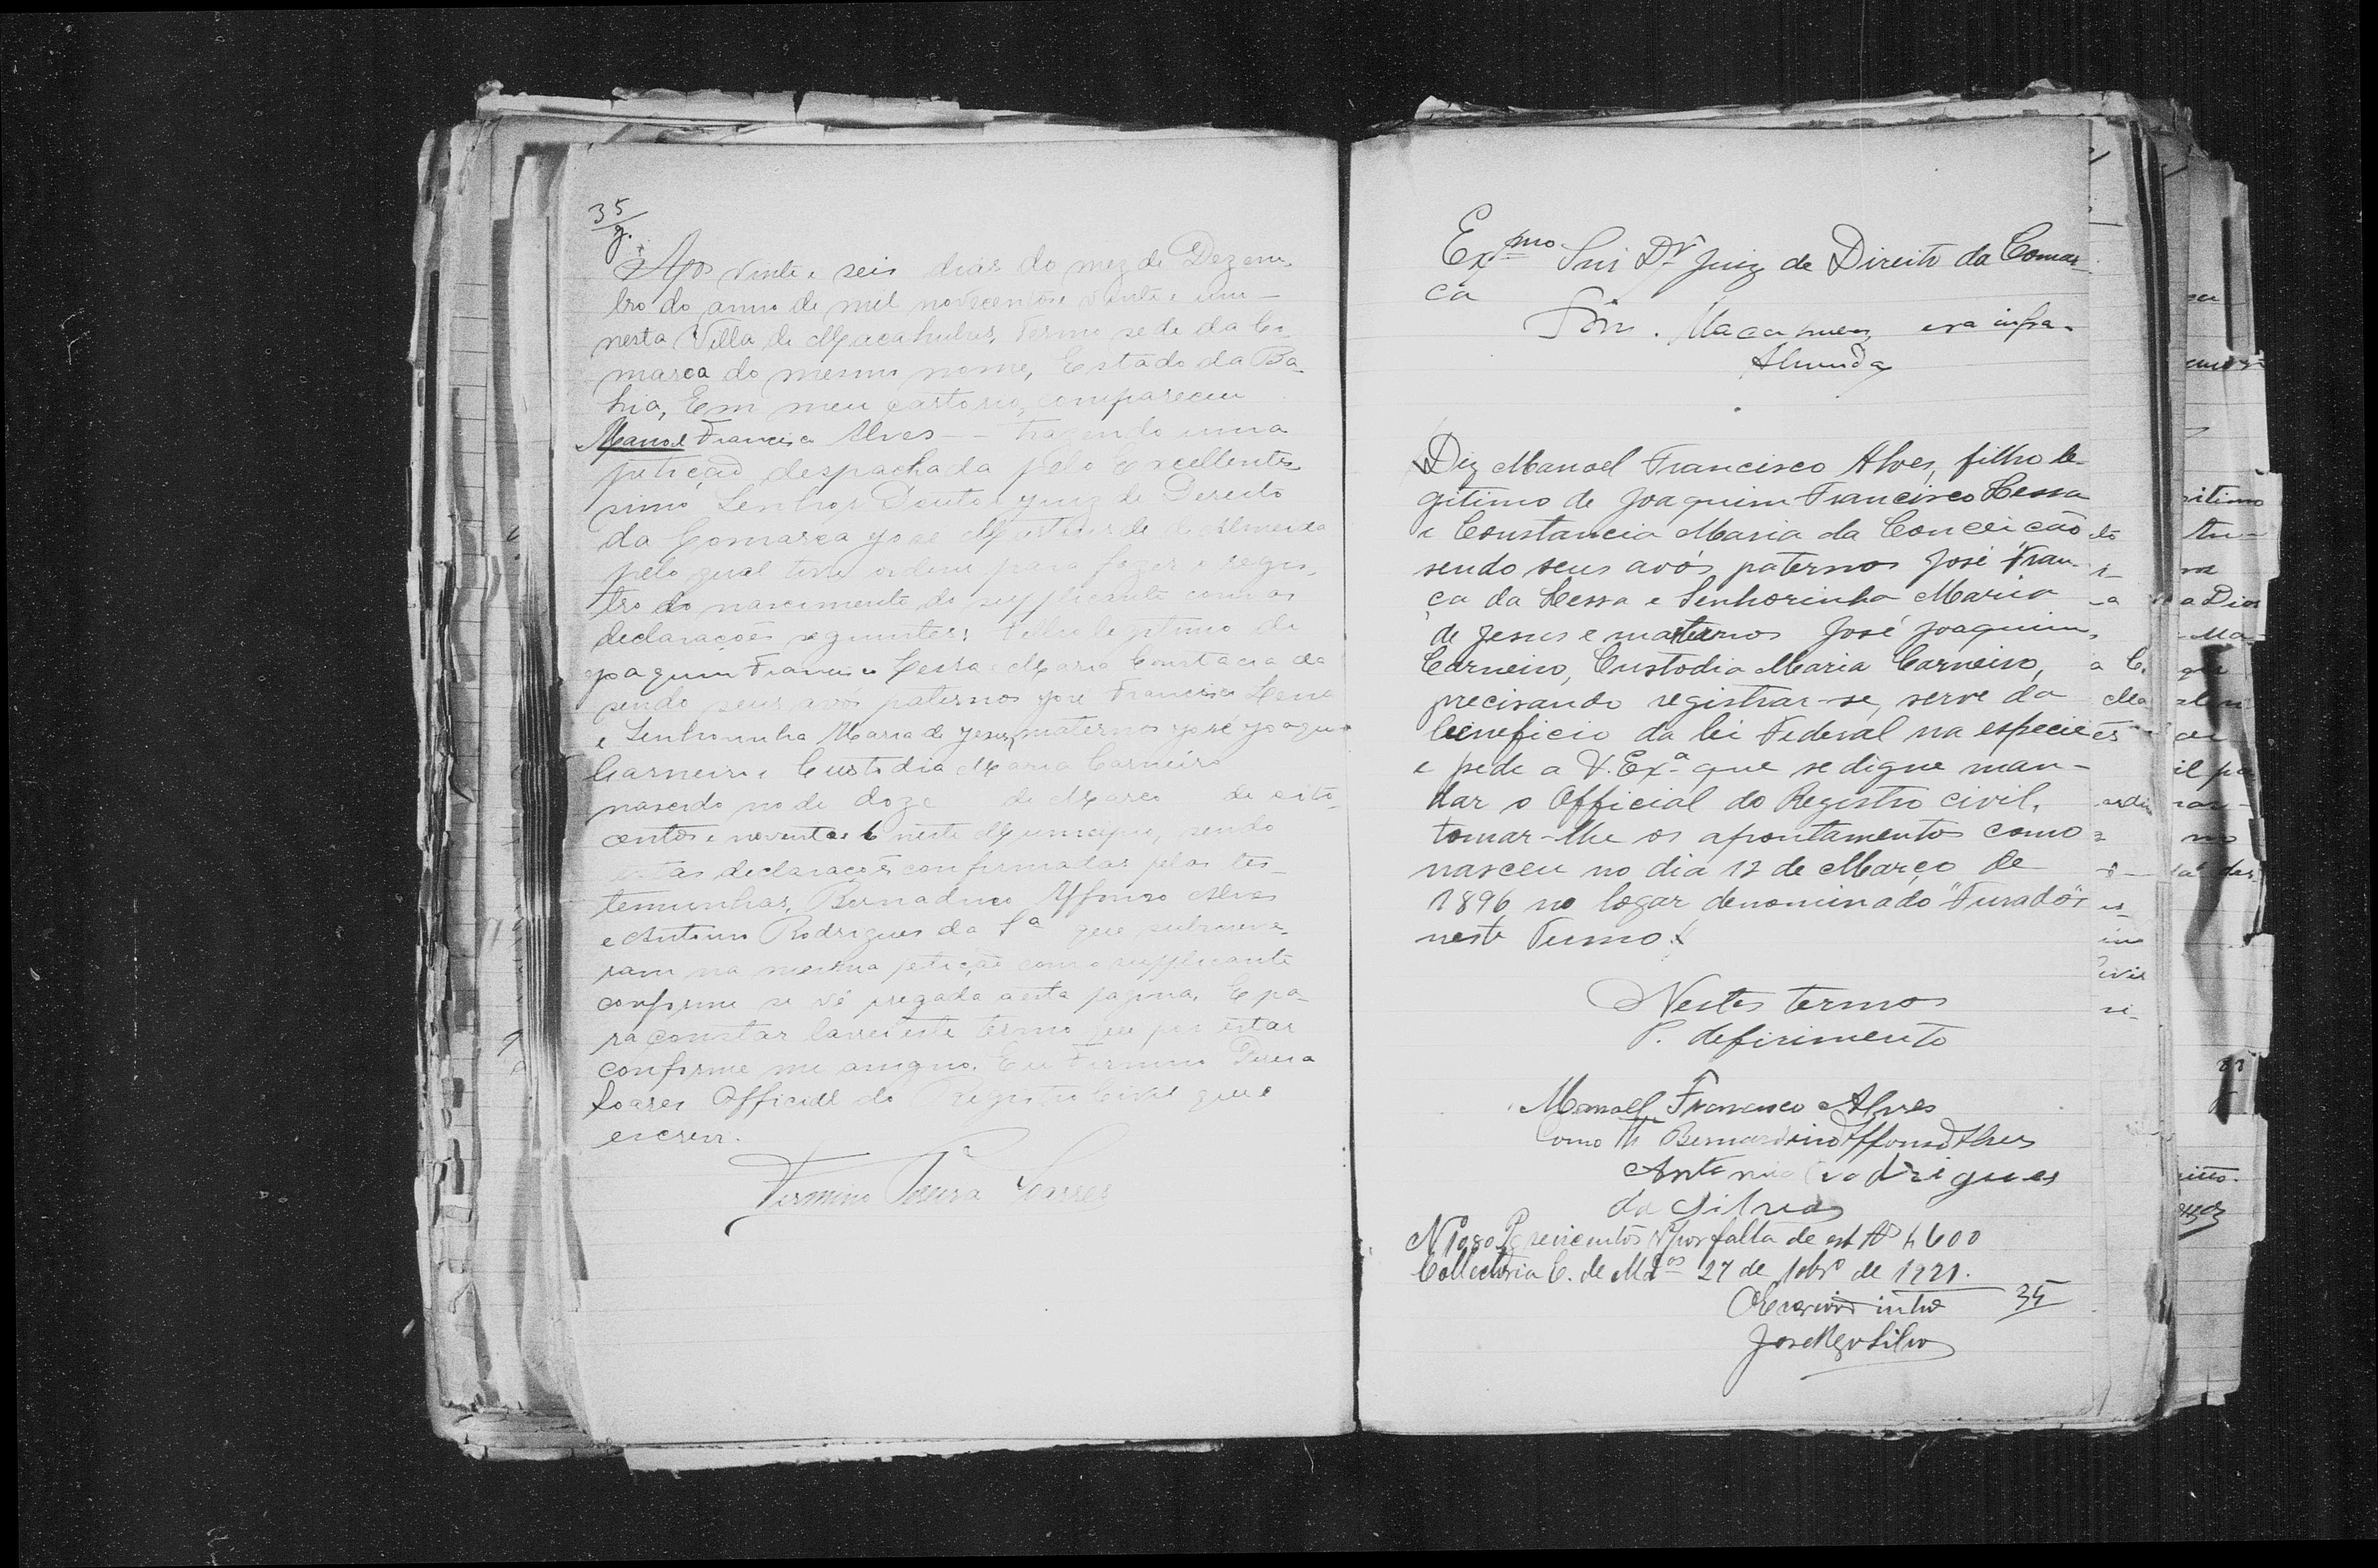 35
Aos vinte e seis dias do mez de Dezem-
bro do anno de mil novecentos e vinte e um
nesta Villa de Macahubas, Termo sede da Co-
marca do mesmo nome, Estado da Ba-
hia, Em meu cartorio, compareceu
Manoel Francisco Alves — trazendo uma
petição despachada pelo Excellentis-
simo Senhor Doutor Juiz de Direito
da Comarca José de Almeida
pelo qual tive ordem para fazer o regis-
tro do nascimento do supplicante com as
declarações seguintes: filho legitimo de
Joaquim Francisco Lessa e Maria Constacia da
sendo seus avós paternos José Francisco Lessa
e Senhorinha Maria de Jesus, maternos José Joaqui
Carneiro e Custodia Maria Carneiro
nascido no de doze de Março de oito-
centos e noventa e 6 neste Municipio, sendo
estas declarações confirmadas pelas tes-
temunhas, Bernadino Affonso Alves
e Antonio Rodrigues da Sª que subscreve-
ram na mesma petição com o supplicante
conforme se vê pregada a esta pagina. E pa-
ra constar lavrei este termo que por estar
conforme me assigno. Eu Firmino Pereira
Soares Official do Registro Civil que
escrevi.
Firmino Pereira Soares
Exmo Snr Dr Juiz de Direito da Comar-
ca
Sim. Macahubas, era infra.
Almeida
Diz Manoel Francisco Alves, filho le-
gitimo de Joaquim Francisco Lessa
e Constancia Maria da Conceição
sendo seus avós paternos José Fran-
ça da Lessa e Senhorinha Maria
de Jesus e maternos José Joaquim
Carneiro, Custodia Maria Carneiro,
precisando registrar-se, serve da
beneficio da lei Federal na especie
e pede a V. Exª que se digne man-
dar o Official do Registro civil,
tomar-lhe os apontamentos como
nasceu no dia 12 de Março de
1896 no logar denominado "Furados"
neste Termo.
Nestes termos
P. defirimento
Manoel Francisco Alves
Como Th Bernardino Affonso Alves
Antonio Rodrigues
da Silva
por falta de est
Collectoria E. de 27 de 10brº de 1921.
O Escrivão
35
José Silva